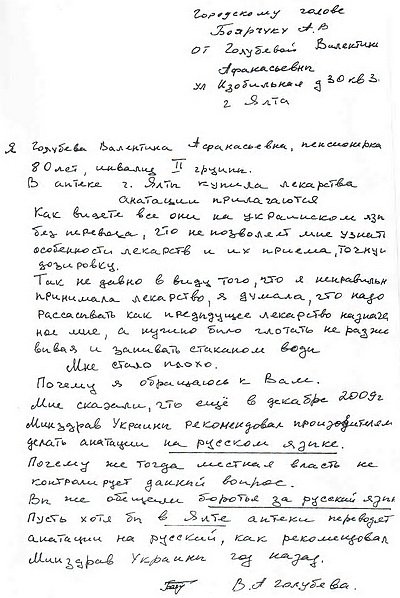 Городскому голове
Боярчуку А.В
от Голубевой Валентин
Афанасьевн
ул Изобильная д 30 кв 3.
г Ялта
Я Голубева Валентина Афанасьевна, пенсионерка
80 лет, инвалид II группы.
В аптеке г. Ялты купила лекарства
анатации прилагаются
Как видете все они на украинском язы
без перевода, что не позволяет мне узнат
особенности лекарств и их приема, точную
дозировку.
Так не давно в виду того, что я неправильн
принимала лекарство, я думала, что надо
рассасывать как предидущее лекарство назначе
ное мне, а нужно было глотать не разже
вывая и запивать стаканом воды
Мне стало плохо.
Почему я обращаюсь к Вам.
Мне сказали, что ещё в декабре 2009г
Минздрав Украины рекомендовал производителям
делать анатации на русском языке.
Почему же тогда местная власть не
контролирует данный вопрос.
Вы же обещали бороться за русский язык
Пусть хотя бы в Ялте аптеки переводят
анатации на русский, как рекомендовал
Минздрав Украины год назад.
В.А Голубева.